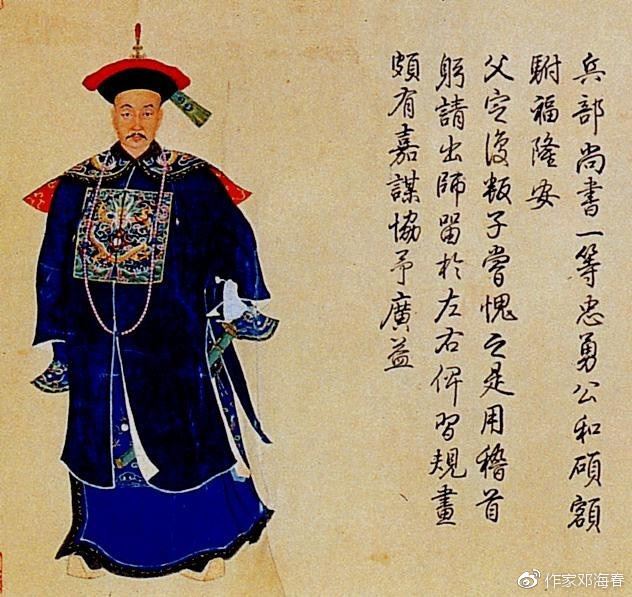 兵部尚書一等忠勇公和碩額
駙福隆安
父定復叛子嘗愧之是用稽首
躬請出師留於左右俾習規畫
頗有嘉謀協予廣益
作家邓海春